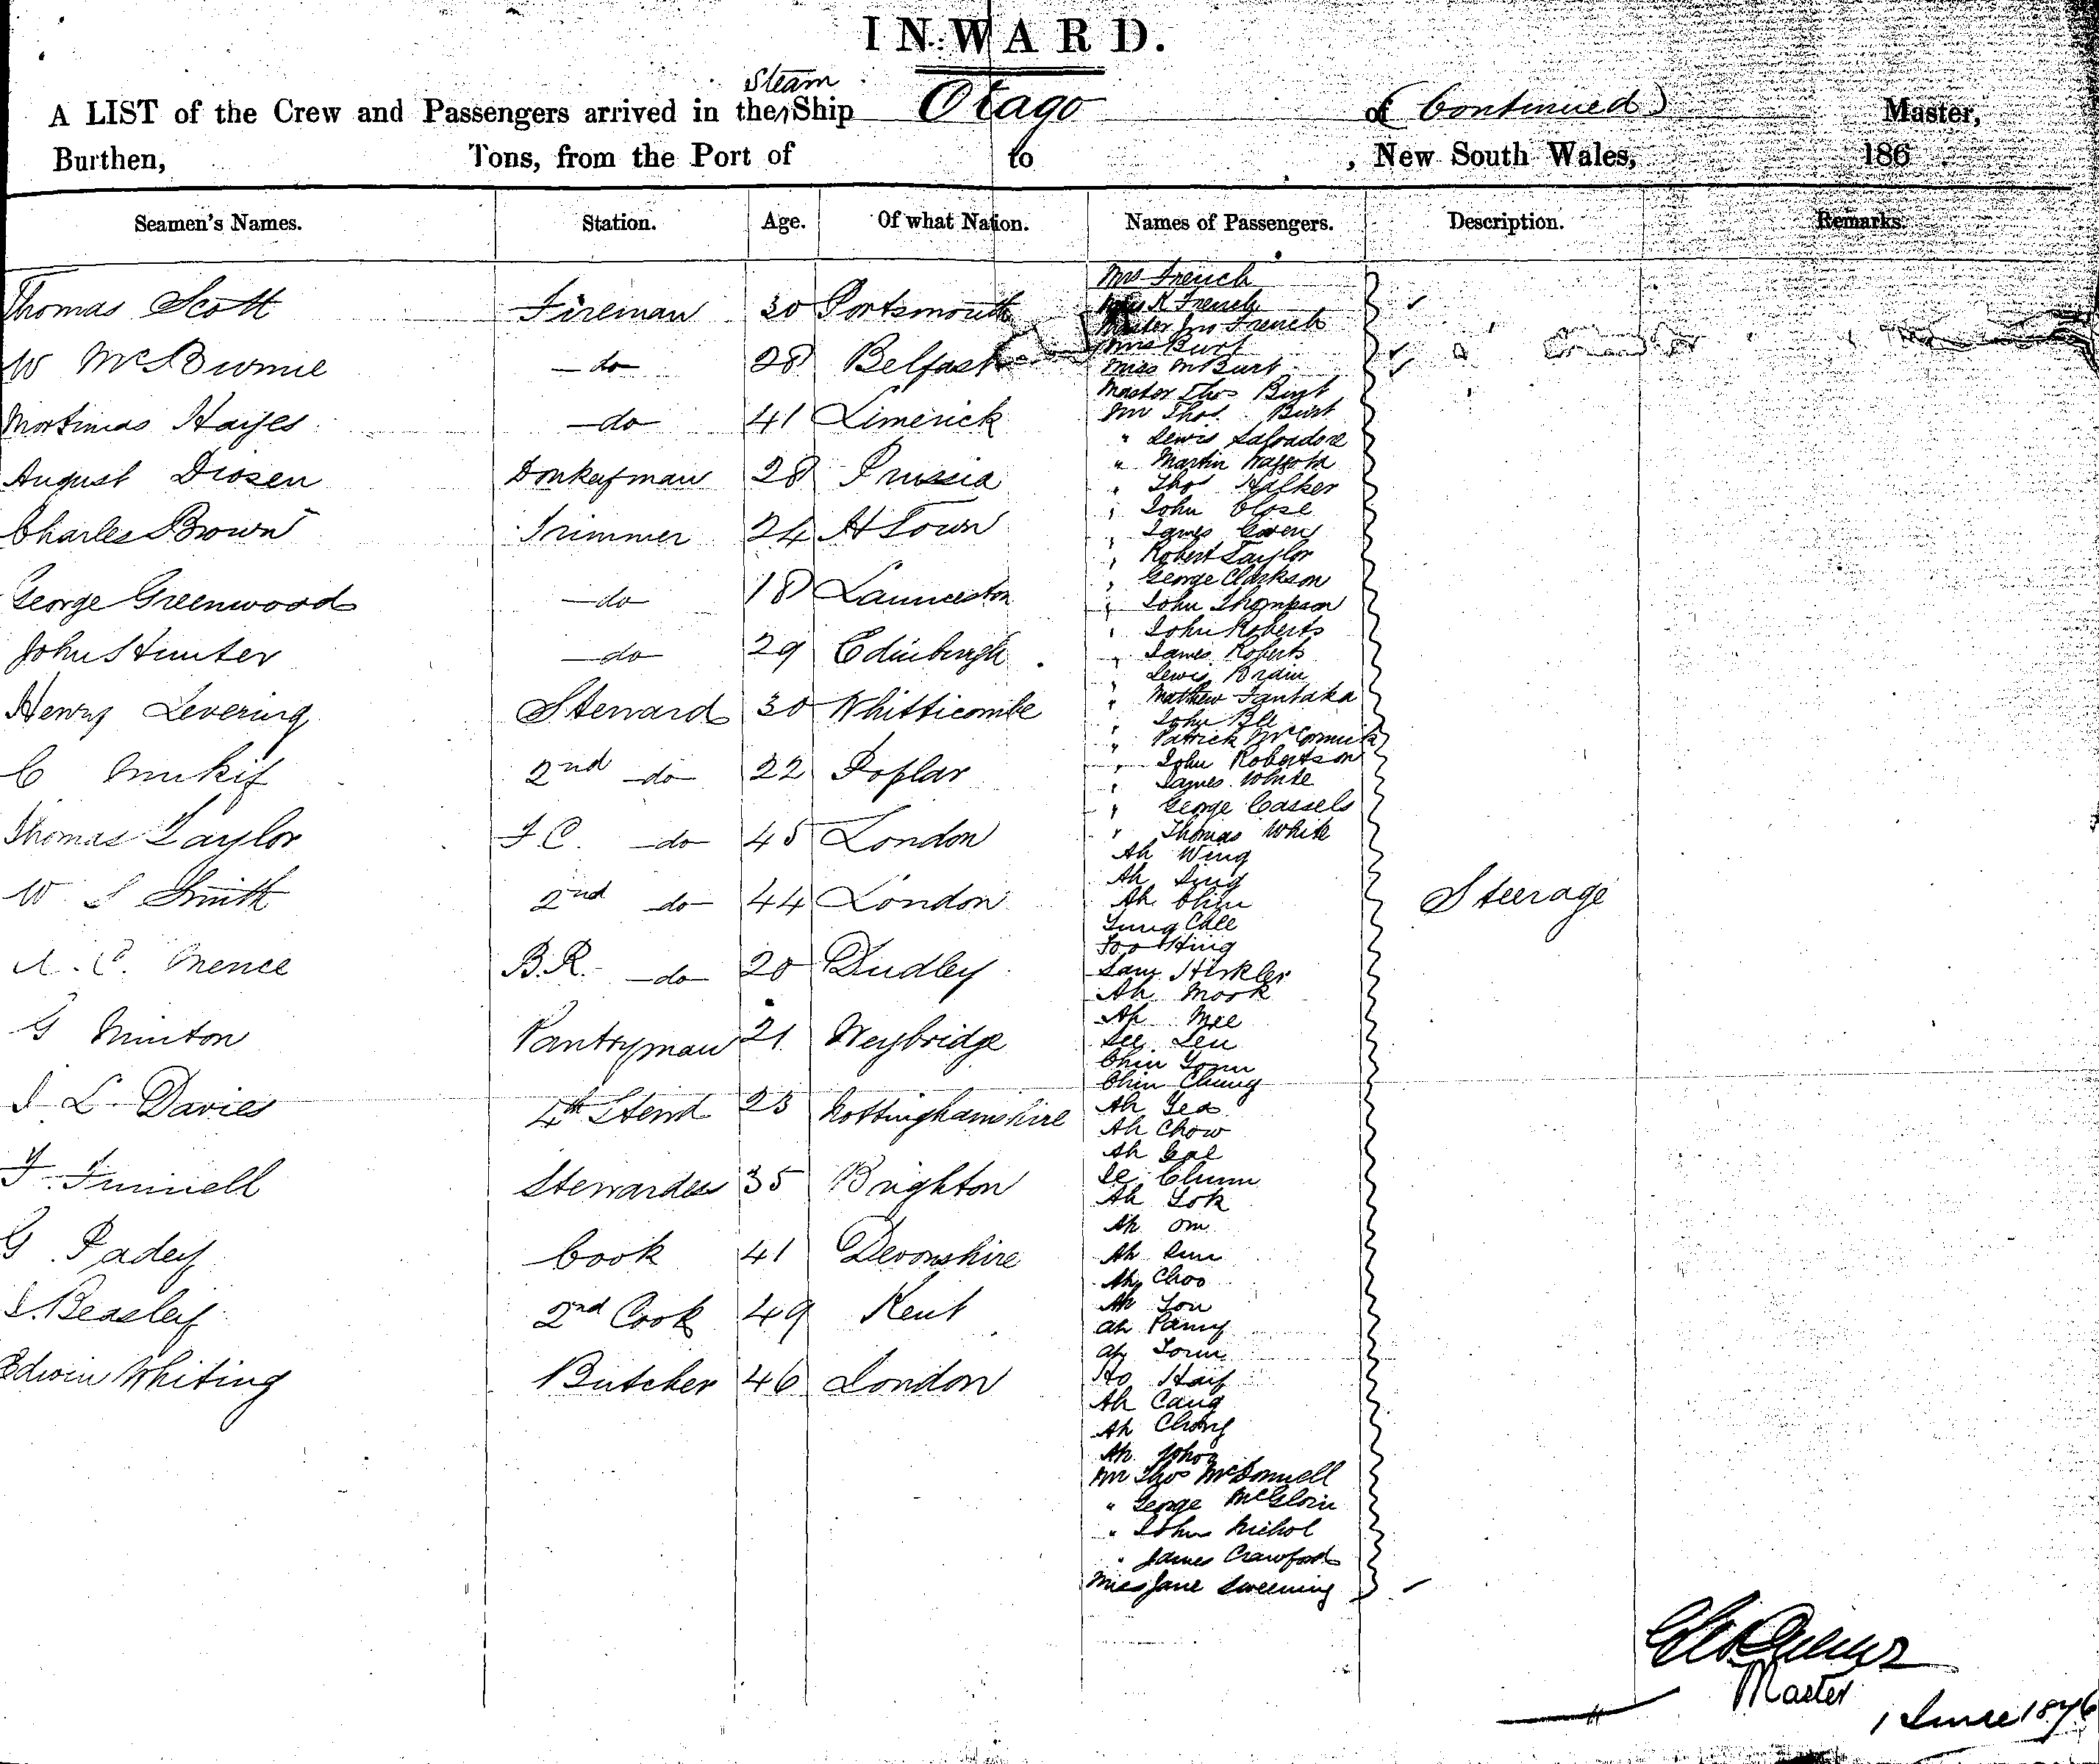 INWARD.
A LIST of the Crew and Passengers arrived in the Steam Ship Otago of (Continued) Master,
Burthen, Tons, from the Port of to , New South Wales, 186
Seamen's Names. Station. Age. Of what Nation. Names of Passengers. Description. Remarks.
Thomas Scott Fireman 30 Portsmouth
W McBurnie do 28 Belfast
Hayes do 41 Limerick
August Donkeyman 28 Prussia
Charles Brown Trimmer 24 H Town
George Greenwood do 18 Launceston
John Hunter do 29 Edinburgh
Henry Levering Steward 30 Whitticombe
C 2nd do 22 Poplar
Thomas Taylor F C. do 45 London
W S Smith 2nd do 44 London
B.R. do 20 Dudley
G Minton Pantryman 21 Weybridge
L. Davies 4th Stewd 23 Nottinghamshire
F. Funnell Stewardess 35 Brighton
G Padey Cook 41 Devonshire
Beasley 2nd Cook 49 Kent
Edwin Whiting Butcher 46 London
Mrs French
Miss K French
Master Jno French
Mrs Burt
Miss M Burt
Master Thos Burt
Mr Thos. Burt
" Lewis Salvadore
" Martin
" Thos Walker
" John Close
" James Owen
" Robert Taylor
" George Clarkson
" John Thompson
" John Roberts
" James Roberts
" Lewis Brain
" Mathew
" John
" Patrick McCormick
" John Robertson
" James White
" George Cassels
" Thomas White
Ah Wing
Ah Sing
Ah Chin
Tung Chee
Foo Hing
Sam
Ah Mook
Ah Mee
See Leu
Chin
Chin Chung
Ah Yea
Ah Chow
Ah
Le Chum
Ah Lok
Ah Om
Ah Sun
Ah Choo
Ah
Ah
Ah
Ho
Ah Cang
Ah Chong
Ah
Mr Thos McDonnell
" George McGloin
" John Nichol
" James Crawford
Miss Jane Sweening
Steerage
Master
1 June 1876